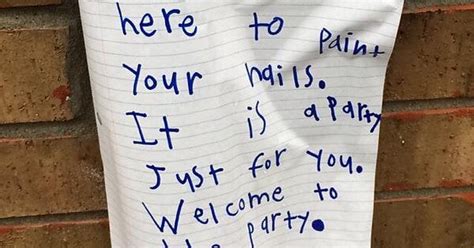 here to paint
your nails.
It is a party
Just for you.
Welcome to
the party.